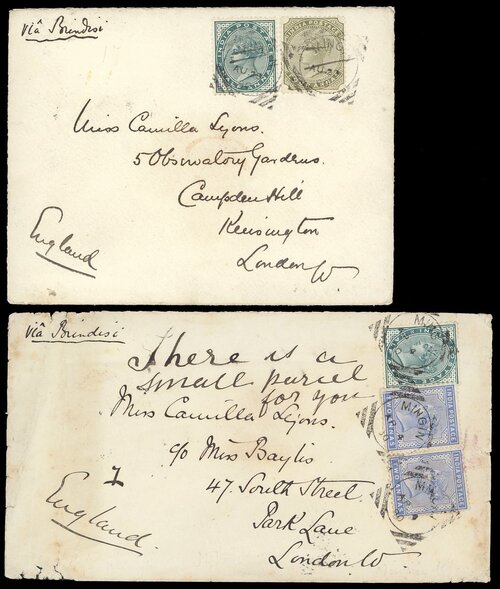 via Brindisi
INDIA POSTAGE
INDIA POSTAGE
Miss Camilla Lyons.
5 Observatory Gardens.
Campden Hill
Kensington
London W.
England
via Brindisi
There is a
small parcel
for you
Miss Camilla Lyons.
c/o Miss Baylis
47. South Street.
Park Lane
London W.
England.
MINGIN
INDIA POSTAGE
TWO ANNAS
MINGIN
INDIA POSTAGE
TWO ANNAS